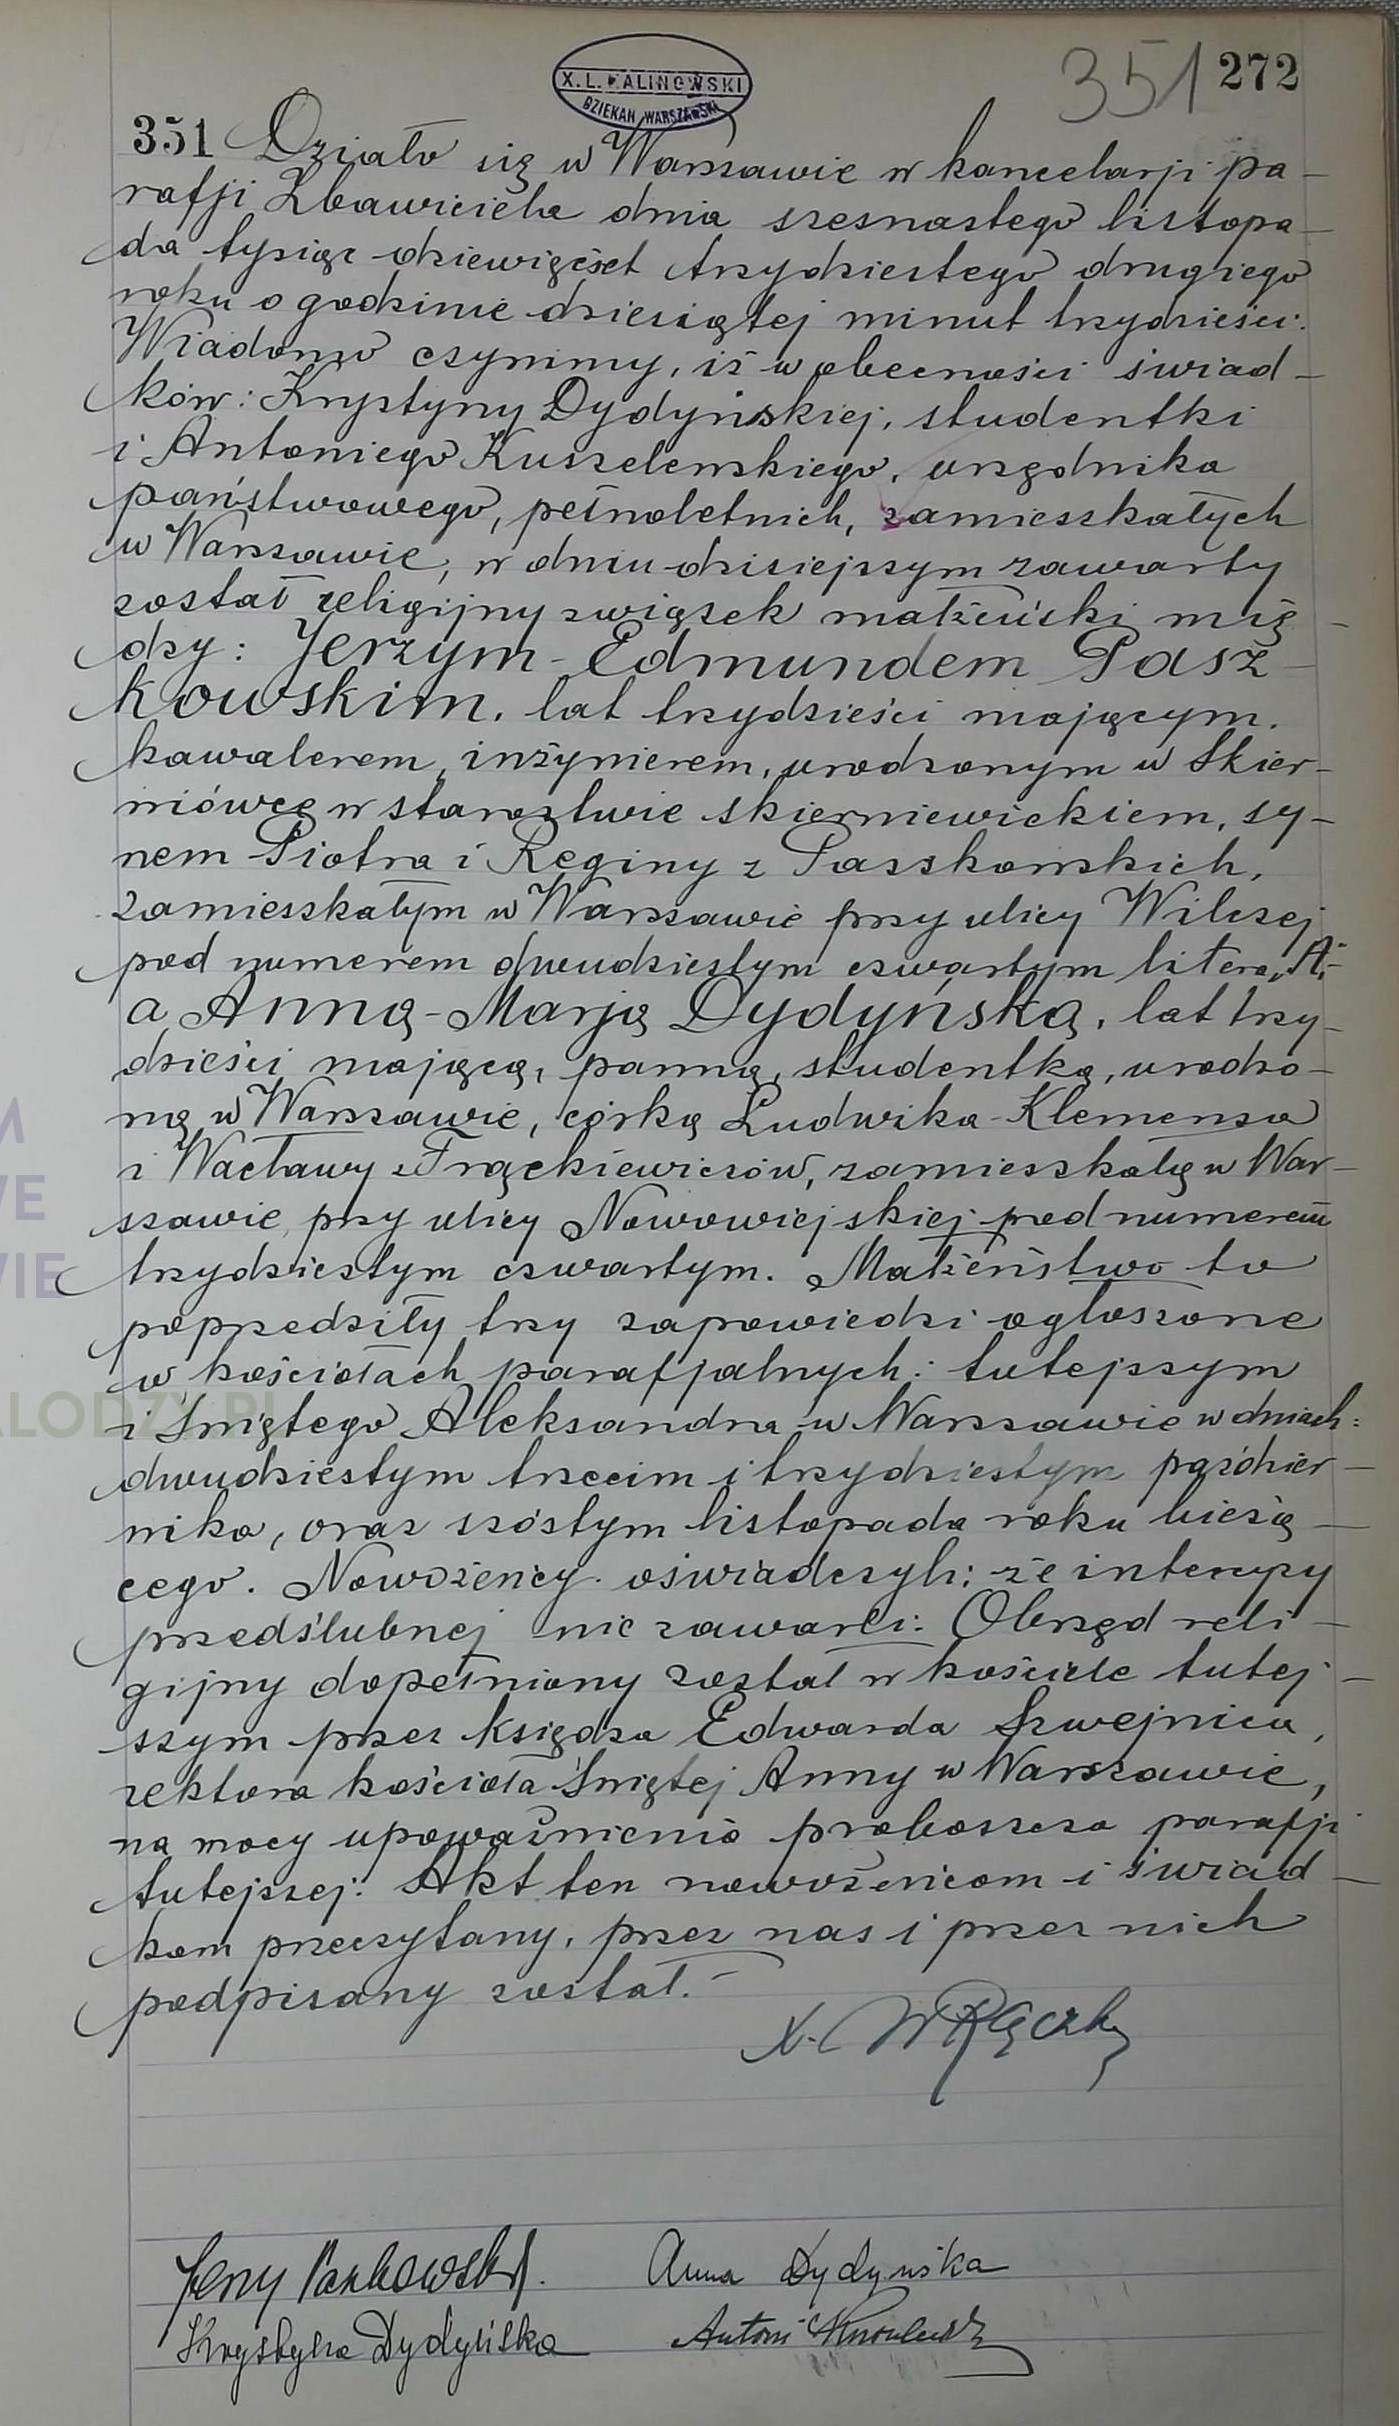 351 272
X. L. KALINOWSKI
DZIEKAN WARSZAWSKI
351 Działo się w Warszawie w kancelarji pa-
rafji Zbawiciela dnia szesnastego listopa-
da tysiąc dziewięćset trzydziestego drugiego
roku o godzinie dziesiątej minut trzydzieści.
Wiadomo czynimy, iż w obecności świad-
ków: Krystyny Dydyńskiej, studentki
i Antoniego Kuszelewskiego, urzędnika
państwowego, pełnoletnich, zamieszkałych
w Warszawie, w dniu dzisiejszym zawarty
został religijny związek małżeński mię-
dzy: Jerzym-Edmundem Pasz-
kowskim, lat trzydzieści mającym,
kawalerem, inżynierem, urodzonym w Skier-
niówce w starostwie skierniewickiem, sy-
nem Piotra i Reginy z Paszkowskich,
zamieszkałym w Warszawie przy ulicy Wilczej
pod numerem dwudziestym czwartym litera „A"-
a Anną-Marją Dydyńską, lat trzy-
dzieści mającą, panną, studentką, urodzo-
ną w Warszawie, córką Ludwika-Klemensa
i Wacławy z Frąckiewiczów, zamieszkałą w War-
szawie, przy ulicy Nowowiejskiej pod numerem
trzydziestym czwartym. Małżeństwo to
poprzedziły trzy zapowiedzi ogłoszone
w kościołach parafjalnych: tutejszym
i Świętego Aleksandra w Warszawie w dniach:
dwudziestym trzecim i trzydziestym paździer-
nika, oraz szóstym listopada roku bieżą-
cego. Nowożeńcy oświadczyli; że intercyzy
przedślubnej nie zawarli: Obrzęd reli-
gijny dopełniony został w kościele tutej-
szym przez księdza Edwarda Szwejnica,
rektora kościoła Świętej Anny w Warszawie,
na mocy upoważnienia proboszcza parafji
tutejszej: Akt ten nowożeńcom i świad-
kom przeczytany, przez nas i przez nich
podpisany został.-
X. W Rączk
Jerzy Paszkowski. Anna Dydyńska
Krystyna Dydyńska Antoni